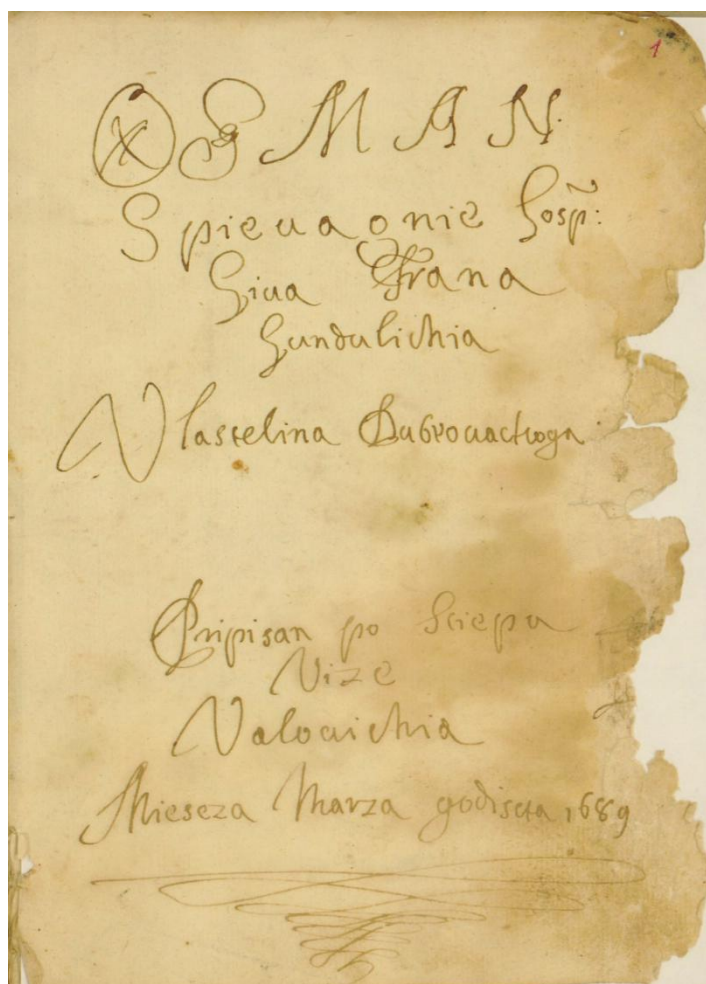 1
OSMAN
Spieuagnie Gosp̃:
Giua Frana
Gundulichia
Vlastelina Dubrouackoga
Pripisan po Sciepu
Vize
Valouichia
Mieseza Marza godiscta 1689